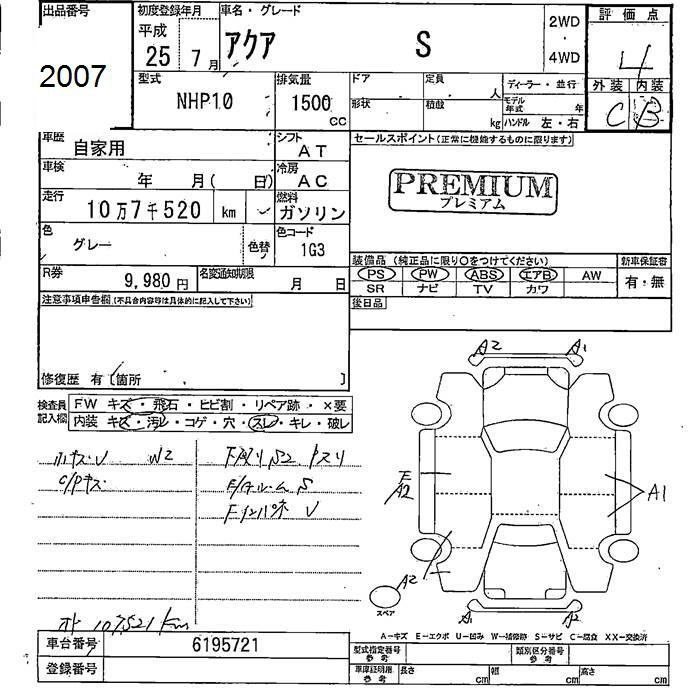 出品番号
2007
初度登録年月
平成
25 7月
車名・グレード
アクア S
2WD
・
4WD
評価点
4
外装 内装
C B
型式
NHP10
排気量
1500
CC
ドア
定員
人
ディーラー・並行
形状
積載
kg
モデル年式 年
ハンドル 左・右
車歴
自家用
シフト
AT
車検
年 月( 日)
冷房
AC
走行
10万7千520 km
燃料
ガソリン
色
グレー
色替
色コード
1G3
R券
9,980円
名変通知期限
月 日
セールスポイント(正常に機能するものに限ります)
PREMIUM
プレミアム
装備品(純正品に限り○をつけてください)
新車保証書
PS PW ABS エアB AW
有・無
SR ナビ TV カワ
後日品
注意事項申告欄(不具合内容等は具体的に記入して下さい)
修復歴 有〔箇所 〕
検査員記入欄
FW キズ・飛石・ヒビ割・リペア跡・×要
内装 キズ・汚レ・コゲ・穴・スレ・キレ・破レ
W2
C/Pキズ
オド 107521km
A2 A1
E
A2
A1
A2
スペア
A1 A2
A−キズ E−エクボ U−凹み W−補修跡 S−サビ C−腐食 XX−交換済
車台番号 6195721
登録番号
型式指定番号
参考
類別区分番号
参考
車庫証明用
参考
長さ cm 幅 cm 高さ cm